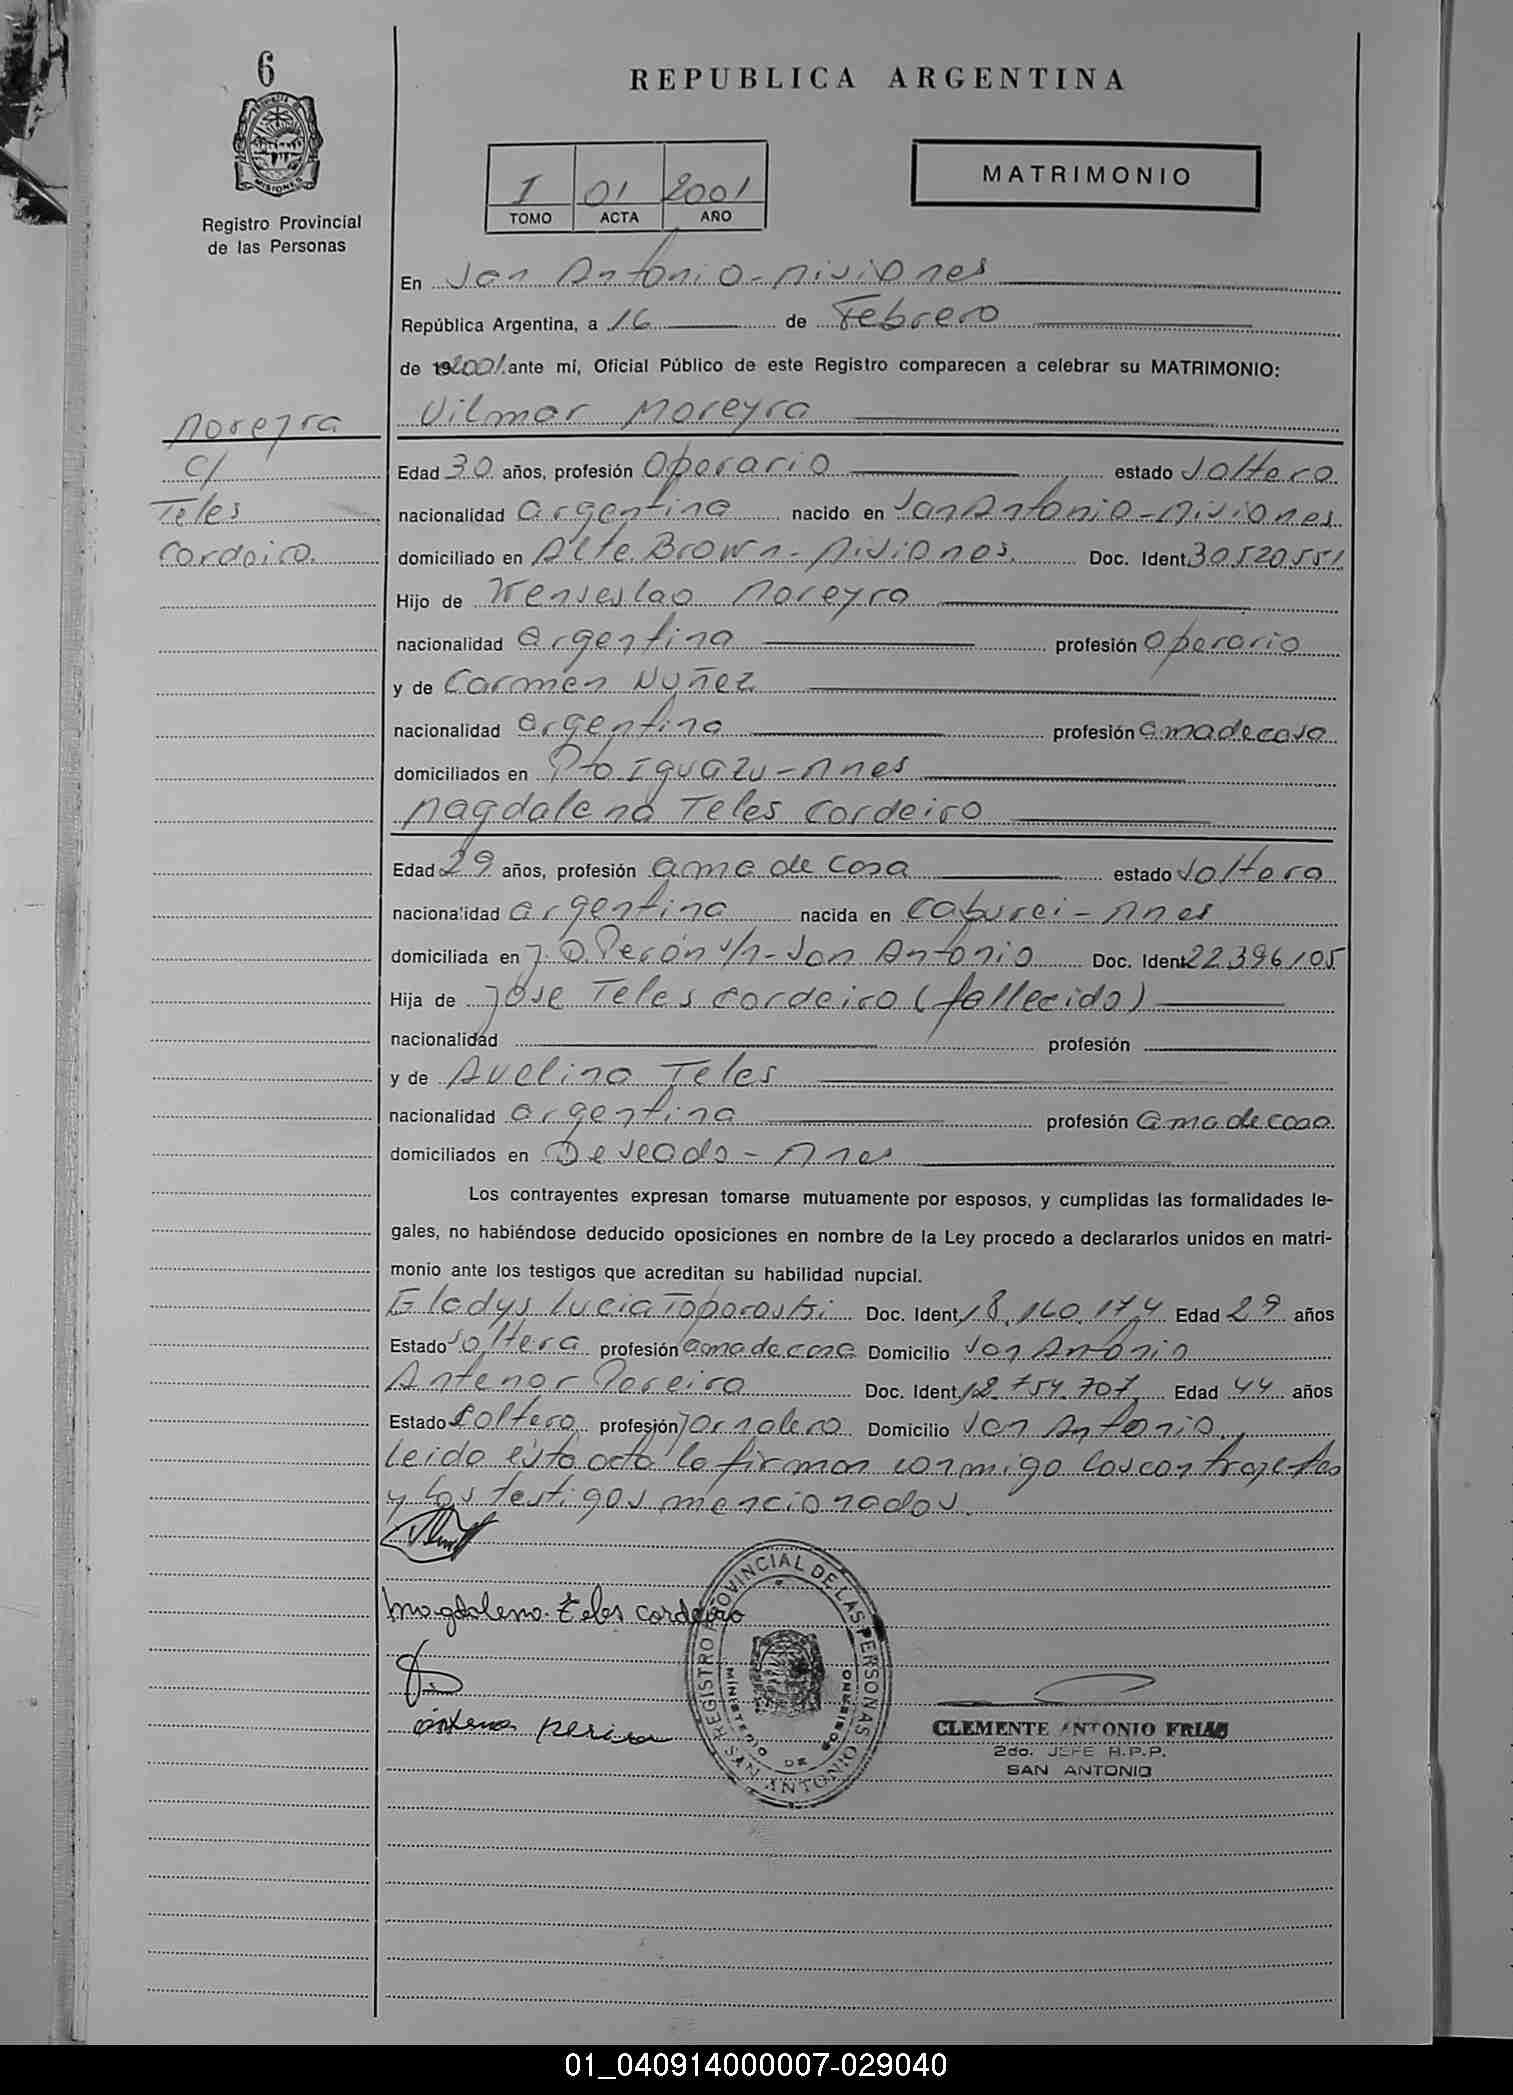 6
REPUBLICA ARGENTINA
MISIONES
Registro Provincial
de las Personas
I 01 2001
TOMO ACTA AÑO
MATRIMONIO
En San Antonio - Misiones
República Argentina, a 16 de Febrero
de 192001 ante mí, Oficial Público de este Registro comparecen a celebrar su MATRIMONIO:
Moreyra
Vilmar Moreyra
c/
Edad 30 años, profesión Operario estado Soltero
Teles
nacionalidad argentina nacido en San Antonio - Misiones
Cordeiro.
domiciliado en Alte. Brown - Misiones. Doc. Ident. 30520551
Hijo de Wenseslao Moreyra
nacionalidad argentina profesión Operario
y de Carmen Nuñez
nacionalidad argentina profesión ama de casa
domiciliados en Pto Iguazu - Mnes
Magdalena Teles Cordeiro
Edad 29 años, profesión ama de casa estado Soltera
nacionalidad argentina nacida en Caburei - Mnes
domiciliada en J.D. Perón s/n - San Antonio Doc. Ident. 22396105
Hija de José Teles Cordeiro (fallecido)
nacionalidad profesión
y de Avelina Teles
nacionalidad argentina profesión ama de casa
domiciliados en Deseado - Mnes
Los contrayentes expresan tomarse mutuamente por esposos, y cumplidas las formalidades le-
gales, no habiéndose deducido oposiciones en nombre de la Ley procedo a declararlos unidos en matri-
monio ante los testigos que acreditan su habilidad nupcial.
Gladys Lucia Toporoski Doc. Ident. 18.160.174 Edad 29 años
Estado soltera profesión ama de casa Domicilio San Antonio
Antenor Pereira Doc. Ident. 12.754.707 Edad 44 años
Estado Soltero profesión jornalero Domicilio San Antonio.
leida esta acta la firman conmigo los contrayentes
y los testigos mencionados.
Magdalena Teles Cordeiro
REGISTRO PROVINCIAL DE LAS PERSONAS
MINISTERIO DE GOBIERNO
SAN ANTONIO
CLEMENTE ANTONIO FRIAS
2do. JEFE R.P.P.
SAN ANTONIO
01_040914000007-029040